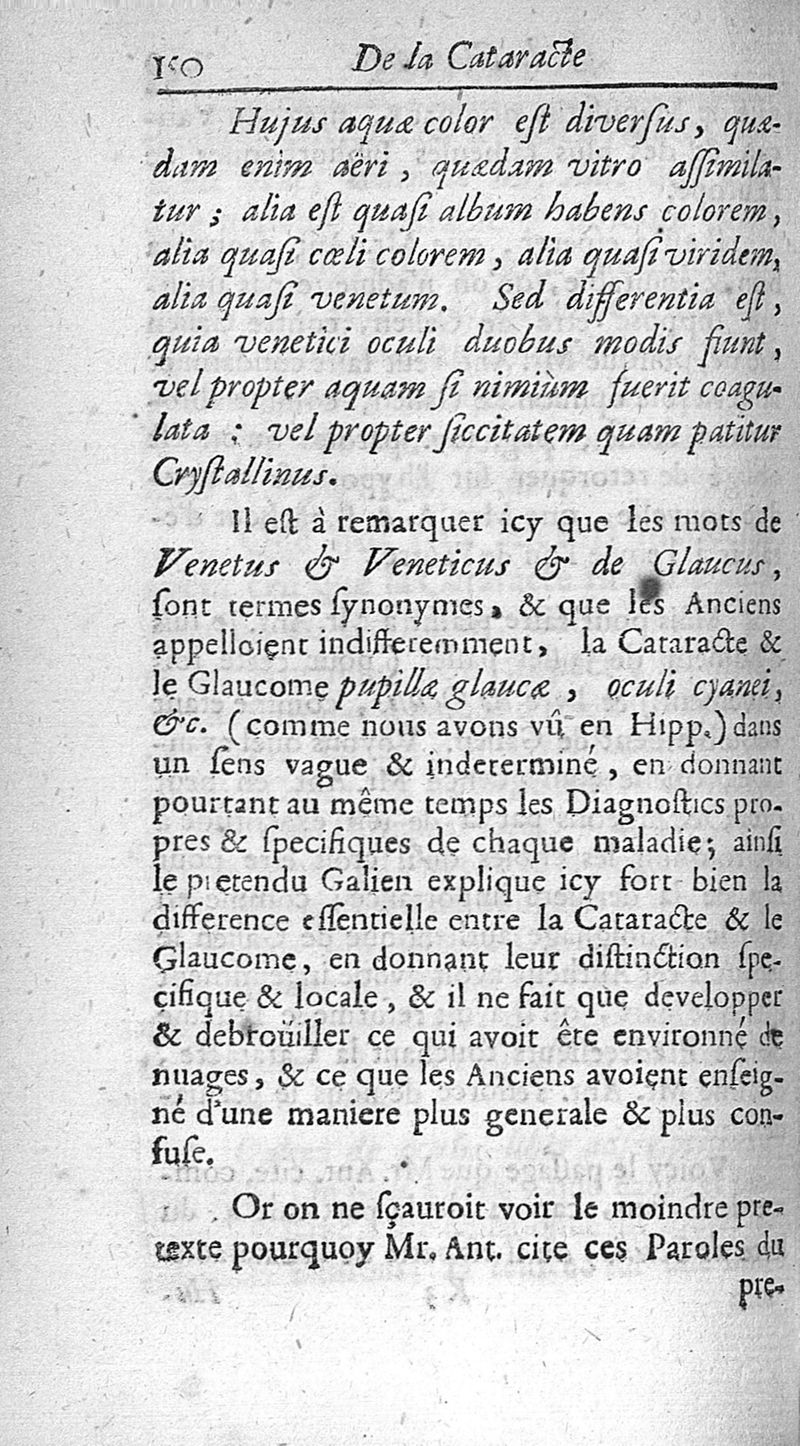 150 De la Cataracte
Hujus aquæ color eſt diverſus, quæ-
dam enim aëri, quædam vitro aſſimila-
tur; alia eſt quaſi album habens colorem,
alia quaſi cœli colorem, alia quaſi viridem,
alia quaſi venetum. Sed differentia eſt,
quia venetici oculi duobus modis fiunt,
vel propter aquam ſi nimiùm fuerit coagu-
lata; vel propter ſiccitatem quam patitur
Cryſtallinus.
Il eſt à remarquer icy que les mots de
Venetus & Veneticus & de Glaucus,
ſont termes ſynonymes, & que les Anciens
appelloient indifferemment, la Cataracte &
le Glaucome pupillæ glaucæ, oculi cyanei,
&c. (comme nous avons vû en Hipp.) dans
un ſens vague & indeterminé, en donnant
pourtant au même temps les Diagnoſtics pro-
pres & ſpecifiques de chaque maladie; ainſi
le pretendu Galien explique icy fort bien la
difference eſſentielle entre la Cataracte & le
Glaucome, en donnant leur diſtinction ſpe-
cifique & locale, & il ne fait que developper
& debroüiller ce qui avoit ête environné de
nuages, & ce que les Anciens avoient enſeig-
né d'une maniere plus generale & plus con-
fuſe.
Or on ne ſçauroit voir le moindre pre-
texte pourquoy Mr. Ant. cite ces Paroles du
pre-